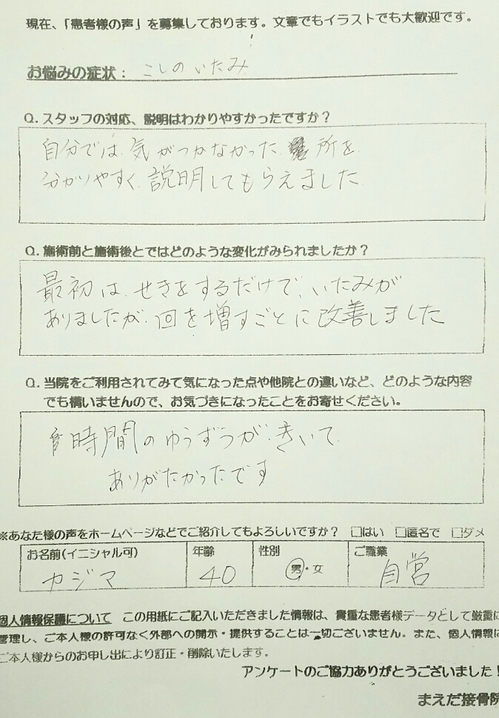 現在、「患者様の声」を募集しております。文章でもイラストでも大歓迎です。
お悩みの症状： こしのいたみ
Q. スタッフの対応、説明はわかりやすかったですか？
自分では 気がつかなかった 所を
分かりやすく 説明してもらえました
Q. 施術前と施術後とではどのような変化がみられましたか？
最初は せきをするだけで、いたみが
ありましたが、回を増すごとに改善しました
Q. 当院をご利用されてみて気になった点や他院との違いなど、どのような内容
でも構いませんので、お気づきになったことをお寄せください。
時間のゆうずうが きいて
ありがたかったです
※あなた様の声をホームページなどでご紹介してもよろしいですか？ □はい □匿名で □ダメ
お名前(イニシャル可) 年齢 性別 ご職業
カジマ 40 男・女 自営
個人情報保護について この用紙にご記入いただきました情報は、貴重な患者様データとして厳重に
管理し、ご本人様の許可なく外部への開示・提供することは一切ございません。また、個人情報は
ご本人様からのお申し出により訂正・削除いたします。
アンケートのご協力ありがとうございました！
まえだ接骨院